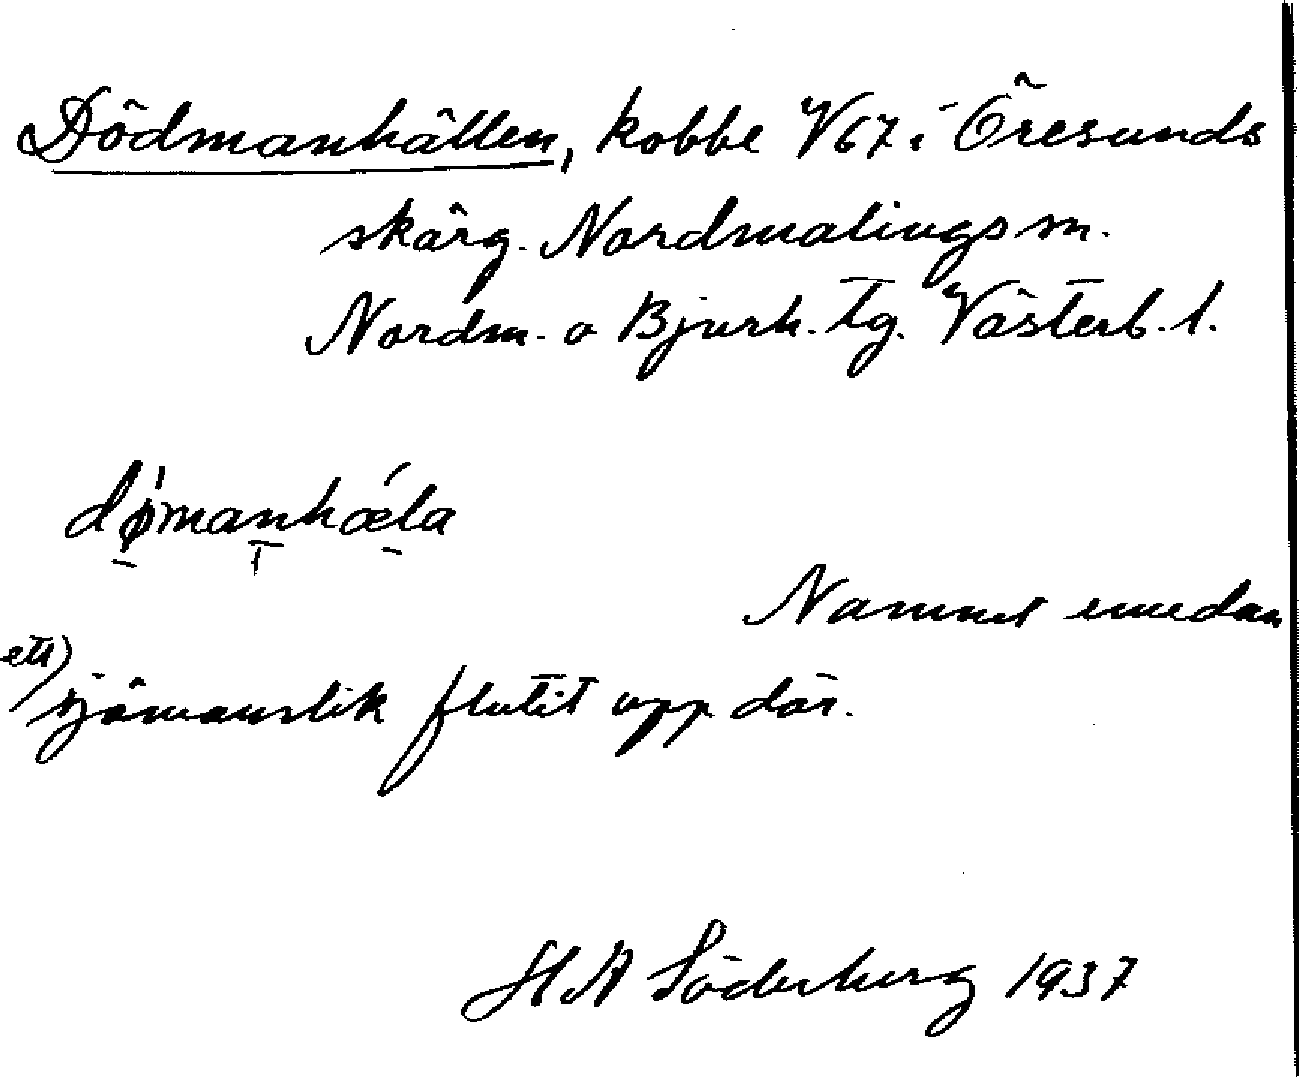 Dödmanhällen, kobbe V67 i Öresunds
skärg. Nordmalings sn.
Nordm. o Bjurh. tg. Västerb. l.
dǿ̱manhǽ̱la
Namnet emedan
ett)
sjömanslik flutit upp där.
H A Söderberg 1937